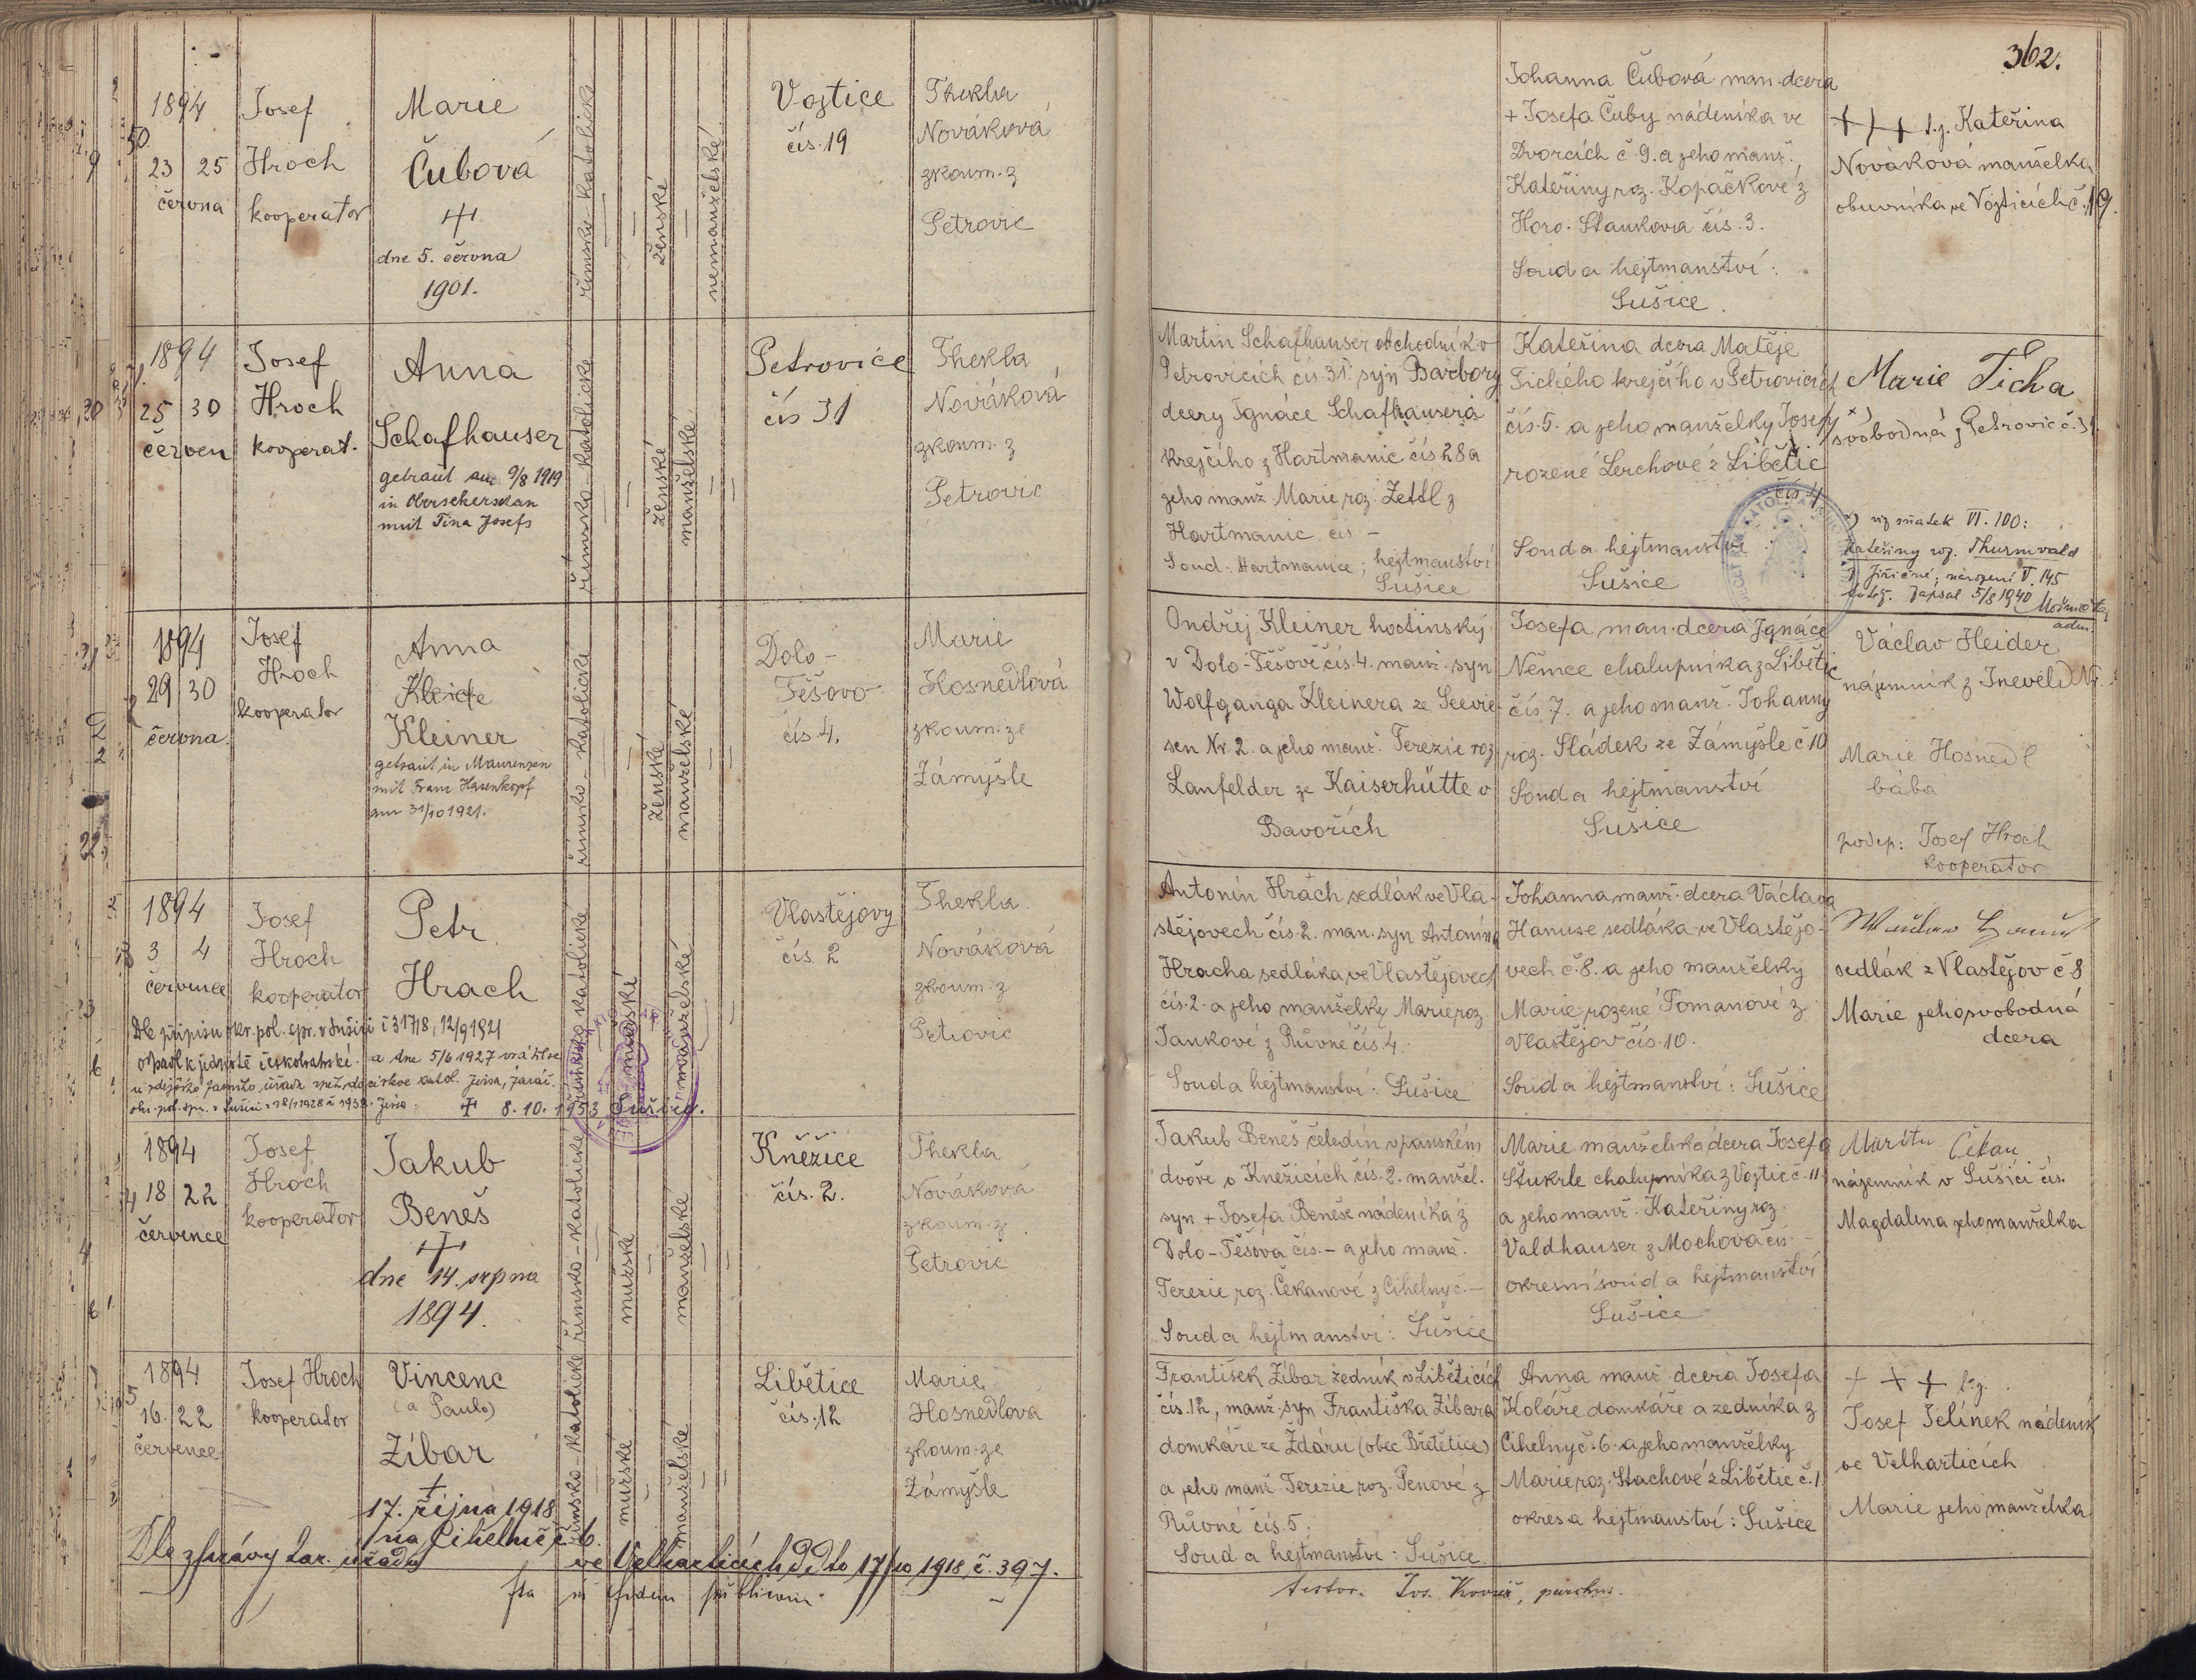 362.
1894
23 25
června
Josef
Hroch
kooperator
Marie
Čubová
dne 5. června
1901.
římsko-katolické
ženské
nemanželské
Vojtice
čís. 19
Thekla
Nováková
zkoum. z
Petrovic
Johanna Čubová man. dcera
+ Josefa Čuby nádeníka ve
Dvorcích č. 9. a jeho manž.
Kateřiny roz. Kopáčkové z
Horo. Staňkova čís. 3.
Soud a hejtmanství:
Sušice.
+++ Kateřina
Nováková manželka
obuvníka ve Vojticích č. 19.
1894
25 30
červen
Josef
Hroch
kooperat.
Anna
Schafhauser
getraut am 9/8 1919
in
mit Tina Josefs
římsko-katolické
ženské
manželské
Petrovice
čís 31
Thekla
Nováková
zkoum. z
Petrovic
Martin Schafhauser obchodník v
Petrovicích čís 31. syn Barbory
dcery Ignáce Schafhausera
krejčího z Hartmanic čís 28 a
jeho manž. Marie roz. Zettl z
Hartmanic čís –
Soud: Hartmanice; hejtmanství
Sušice
Kateřina dcera Matěje
Tichého krejčího v Petrovicích
čís. 5. a jeho manželky Josefy x)
rozené Lerchové z Libětic
čís. 4
Soud a hejtmanství
Sušice
Marie Tichá
svobodná z Petrovic č. 31.
x) viz sňatek VI. 100:
Kateřiny roz. Thurnvald
z Jiřičné; narození V. 145
zapsal 5/8 1940
adm.
1894
29 30
června.
Josef
Hroch
kooperator
Anna
Kleiner
getraut in Maurenzen
mit Franz Hasenkopf
am 31/10 1921.
římsko-katolické
ženské
manželské
Dolo-
Těšovo
čís 4.
Marie
Hosnedlová
zkoum. ze
Zámyšle
Ondřej Kleiner hostinský
v Dolo-Těšově čís. 4. manž. syn
Wolfganga Kleinera ze Seewie-
sen Nr. 2. a jeho manž. Terezie roz.
Lanfelder ze Kaiserhütte v
Bavořích
Josefa man. dcera Ignáce
Němce chalupníka z Libětic
čís. 7. a jeho manž. Johanny
roz. Sládek ze Zámyšle č 10
Soud a hejtmanství
Sušice
Václav Heider
nájemník z
Marie Hosnedl
bába
podep: Josef Hroch
kooperator
1894
3 4
července
Josef
Hroch
kooperator
Petr
Hrach
Dle přípisu okr. pol. spr. v Sušici č 31718, 12/9 1921
odpadl k jednotě českobratrské. a dne 5/6 1927
církve katol.
8. 10. 1953 Sušice.
římsko katolické
mužské
manželské
Vlastějovy
čís. 2
Thekla
Nováková
zkoum. z
Petrovic
Antonín Hrach sedlák ve Vla-
stějovech čís. 2. man. syn Antonína
Hracha sedláka ve Vlastějovech
čís. 2. a jeho manželky Marie roz.
Jankové z Růvné čís. 4.
Soud a hejtmanství: Sušice
Johanna manž. dcera Václava
Hanuse sedláka ve Vlastějo-
vech č. 8. a jeho manželky
Marie rozené Tomanové z
Vlastějov čís. 10.
Soud a hejtmanství: Sušice
sedlák z Vlastějov č 8
Marie jeho svobodná
dcera
1894
18 22
července
Josef
Hroch
kooperator
Jakub
Beneš
dne 14. srpna
1894.
římsko-katolické
mužské
manželské
Kněžice
čís. 2.
Thekla
Nováková
zkoum. z
Petrovic
Jakub Beneš čeledín v panském
dvoře v Kněžicích čís. 2. manžel.
syn + Josefa Beneše nádeníka z
Dolo-Těšova čís. – a jeho manž.
Terezie roz. Čekanové z Cihelny č. –
Soud a hejtmanství: Sušice
Marie manželská dcera Josefa
Štukrle chalupníka z Vojtic č. 11.
a jeho manž. Kateřiny roz.
Valdhauser z Mochova čís. –
okresní soud a hejtmanství
Sušice
Martin Čekan
nájemník v Sušici čís.
Magdalena jeho manželka
1894
16. 22
července
Josef Hroch
kooperator
Vincenc
(a Paulo)
Zíbar
17. října 1918
na Cihelně č 6.
Dle zprávy far. úřadu ve Velharticích ddto 17/10 1918, č. 397.
římsko-katolické
mužské
manželské
Libětice
čís. 12
Marie
Hosnedlová
zkoum. ze
Zámyšle
František Zíbar zedník v Liběticích
čís. 12, manž. syn Františka Zíbara
domkáře ze Ždáru (obec Břetětice)
a jeho manž. Terezie roz. Penové z
Růvné čís. 5.
Soud a hejtmanství: Sušice.
Anna manž. dcera Josefa
Koláře domkáře a zedníka z
Cihelny č. 6. a jeho manželky
Marie roz. Stachové z Libětic č. 1
okres a hejtmanství: Sušice
+ + +
Josef Jelínek nádeník
ve Velharticích
Marie jeho manželka